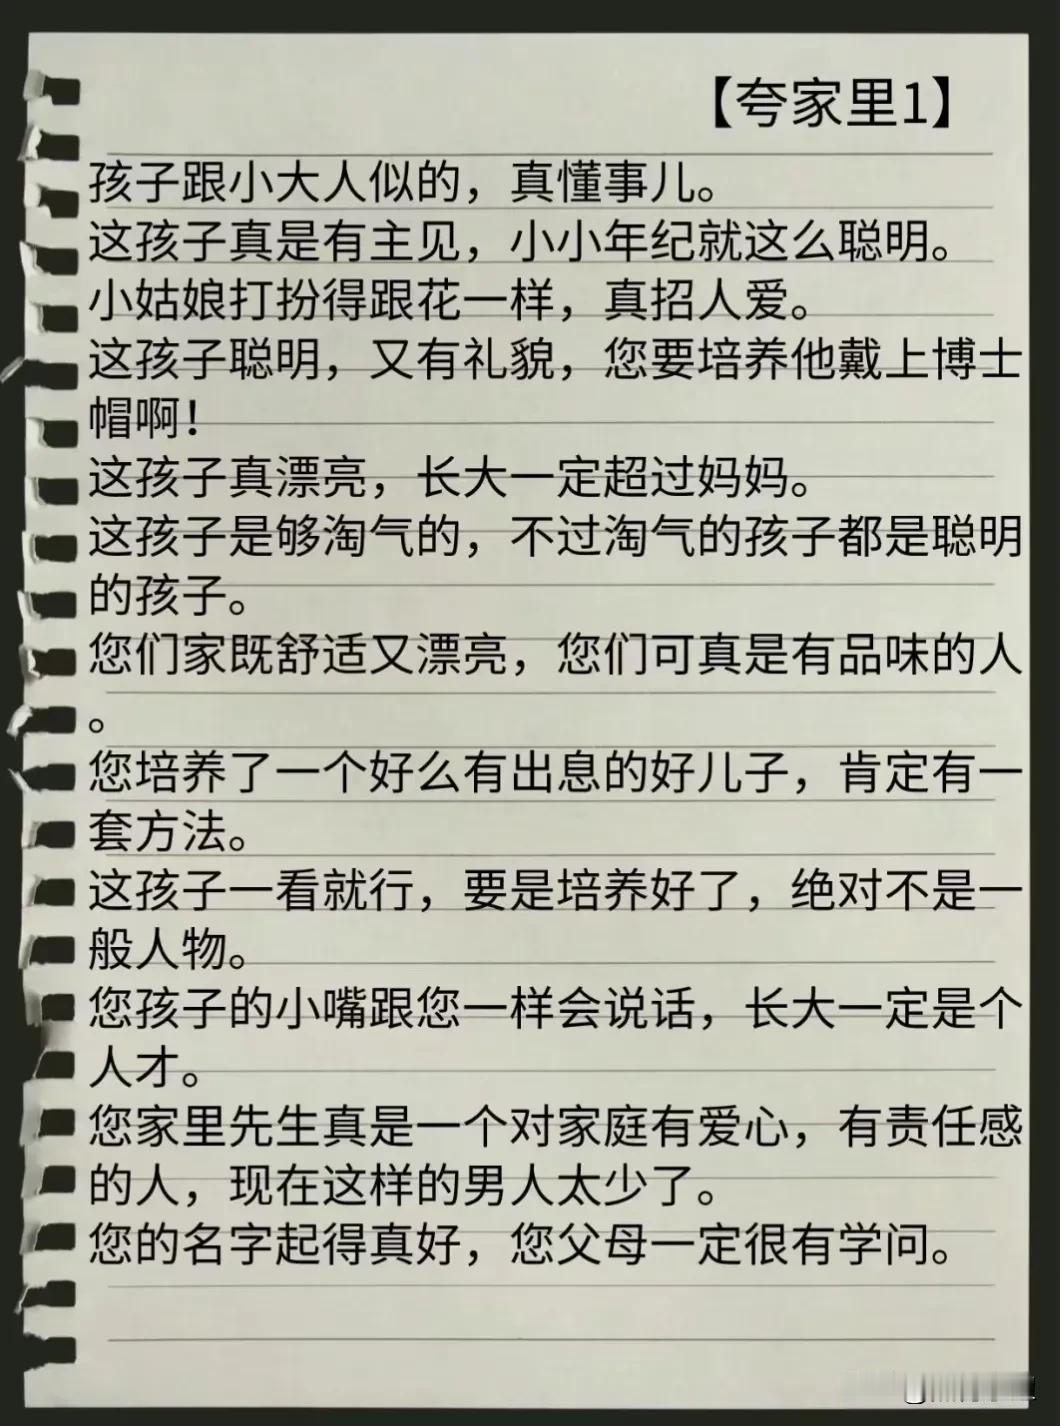 【夸家里1】
孩子跟小大人似的，真懂事儿。
这孩子真是有主见，小小年纪就这么聪明。
小姑娘打扮得跟花一样，真招人爱。
这孩子聪明，又有礼貌，您要培养他戴上博士
帽啊！
这孩子真漂亮，长大一定超过妈妈。
这孩子是够淘气的，不过淘气的孩子都是聪明
的孩子。
您们家既舒适又漂亮，您们可真是有品味的人
。
您培养了一个好么有出息的好儿子，肯定有一
套方法。
这孩子一看就行，要是培养好了，绝对不是一
般人物。
您孩子的小嘴跟您一样会说话，长大一定是个
人才。
您家里先生真是一个对家庭有爱心，有责任感
的人，现在这样的男人太少了。
您的名字起得真好，您父母一定很有学问。